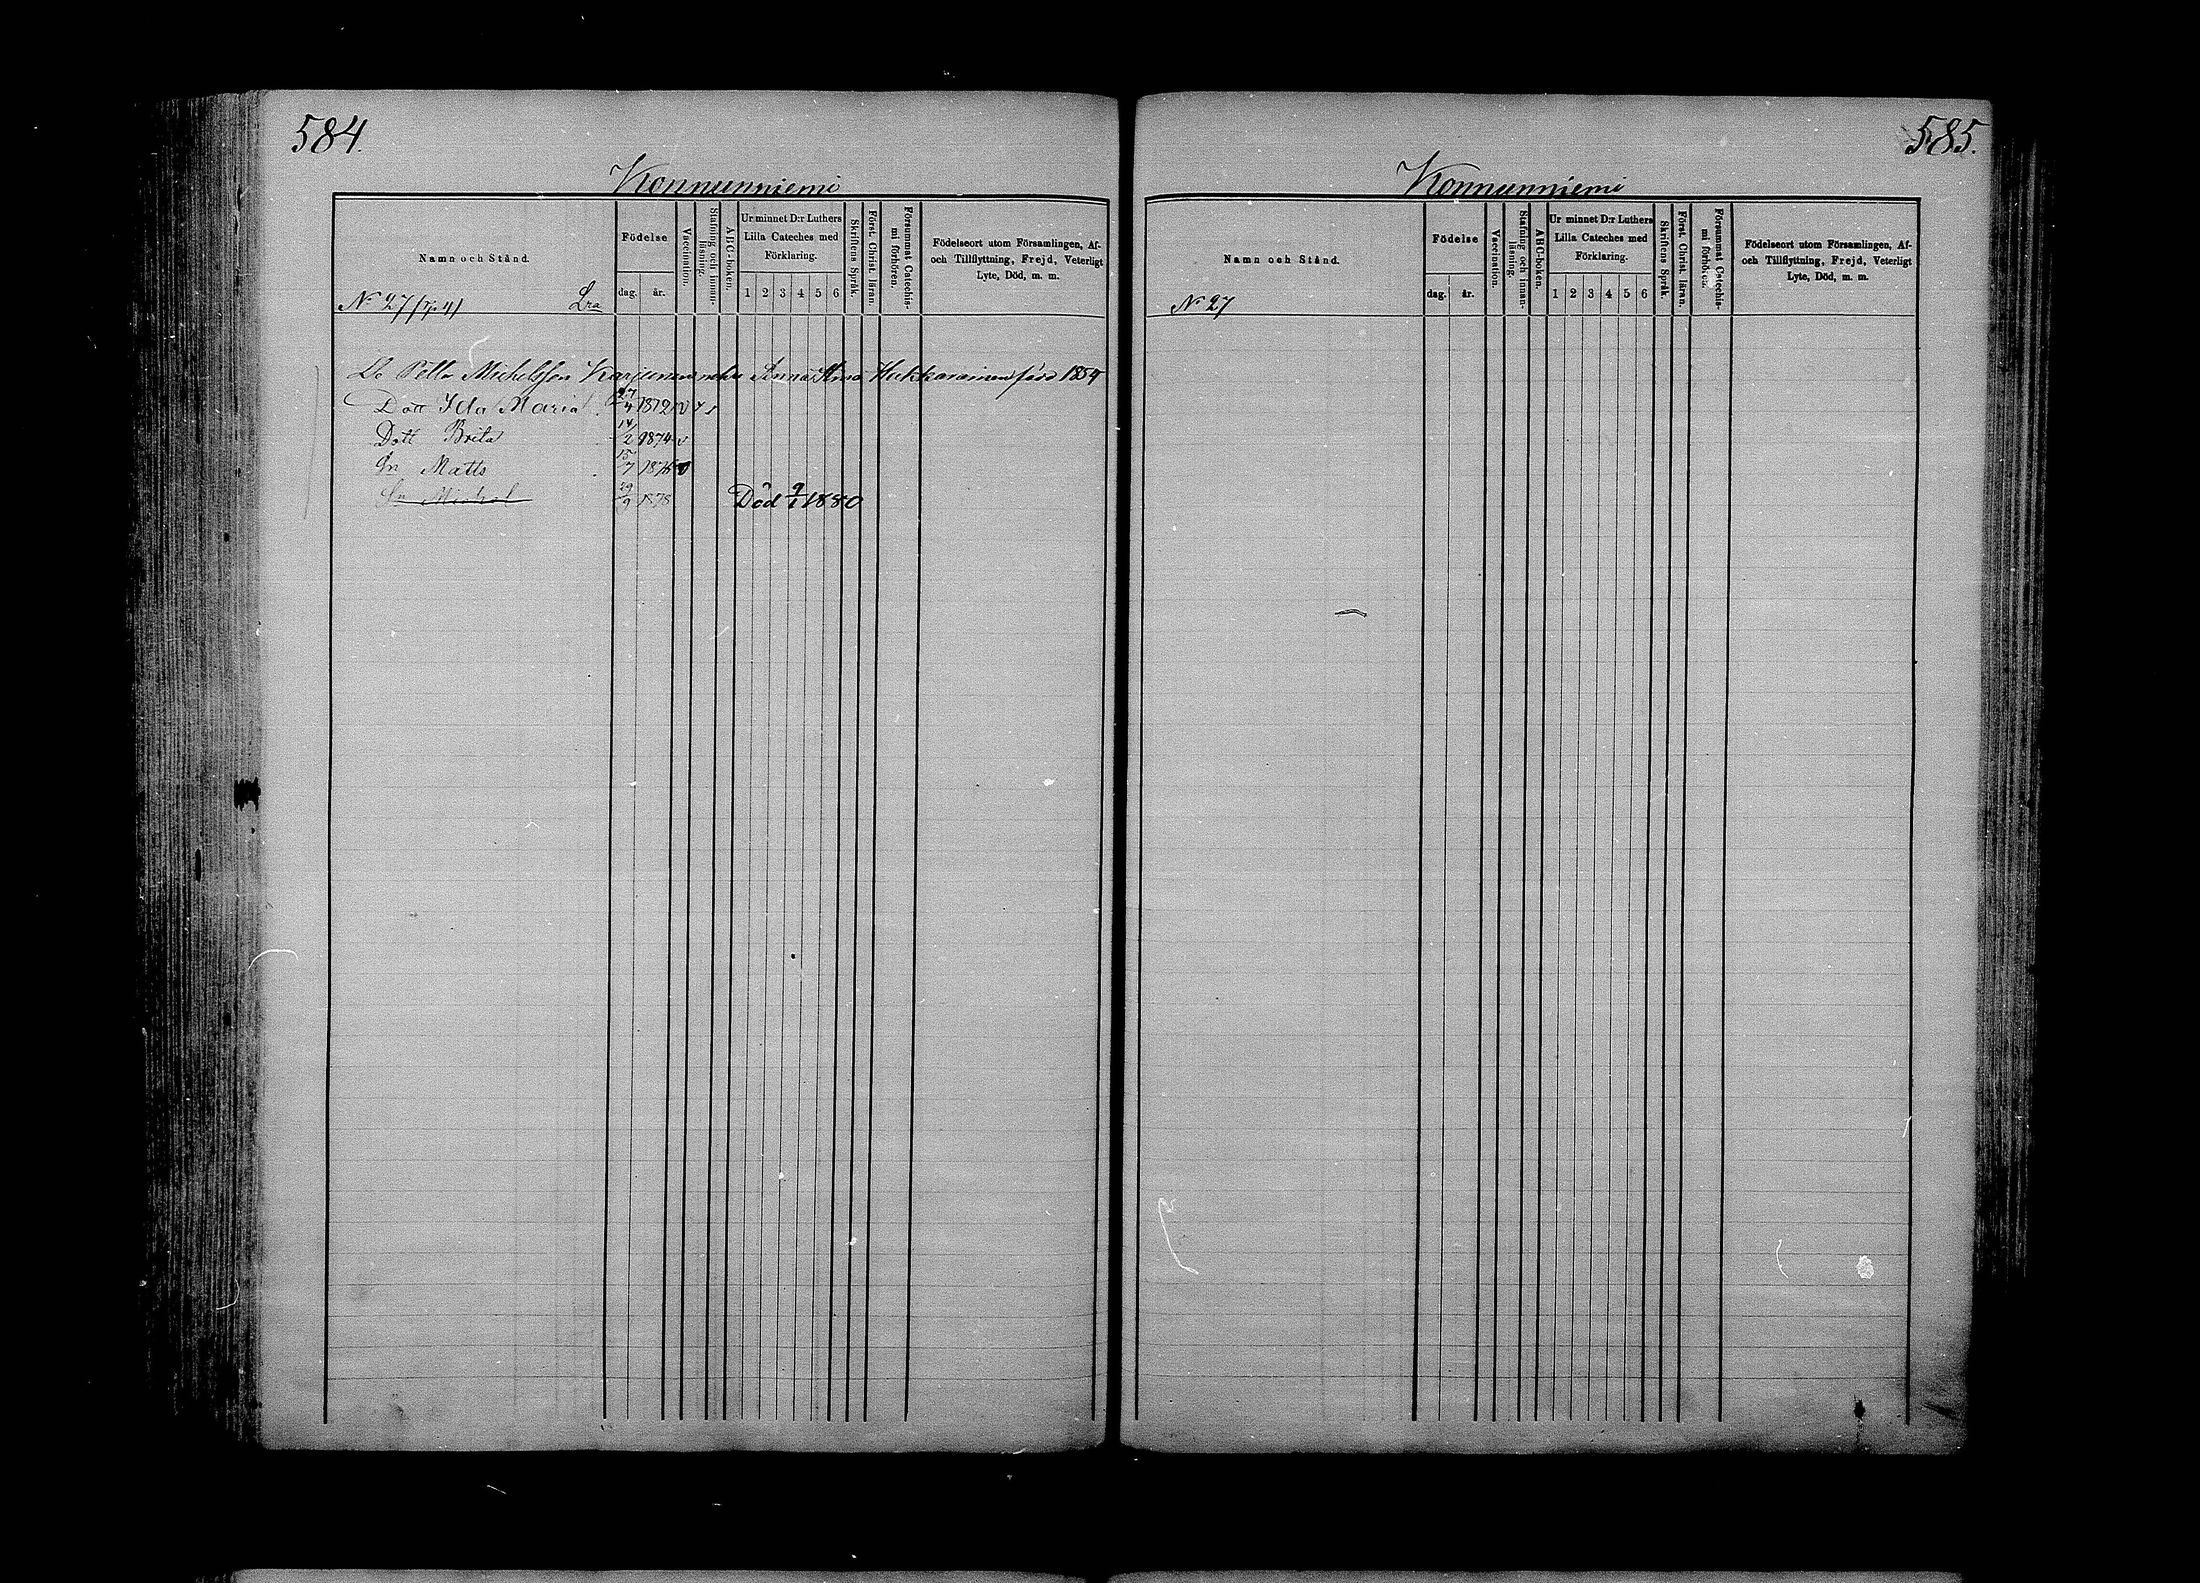 584.
Konnunniemi
Namn och Stånd.
Födelse
dag. år.
Vaccination.
Stafning och innan-
läsning.
ABC-boken.
Ur minnet D:r Luthers
Lilla Cateches med
Förklaring.
1 2 3 4 5 6
Skriftens Språk.
Först. Christ. läran.
Försummat Catechis-
mi förhören.
Födelseort utom Församlingen, Af-
och Tillflyttning, Frejd, Veterligt
Lyte, Död, m. m.
No 27
Pelle Michelsson Karjunen Anna Hukkarainen född 1854
Dott Ida Maria 27/4 1872 v
Dott Brita 14/2 1874 v
Sn Matts 15/7 1876
Sn Michel 29/9 1878 Död 9/1 1880
585.
Konnunniemi
Namn och Stånd.
Födelse
dag. år.
Vaccination.
Stafning och innan-
läsning.
ABC-boken.
Ur minnet D:r Luthers
Lilla Cateches med
Förklaring.
1 2 3 4 5 6
Skriftens Språk.
Först. Christ. läran.
Försummat Catechis-
mi förhören.
Födelseort utom Församlingen, Af-
och Tillflyttning, Frejd, Veterligt
Lyte, Död, m. m.
No 27